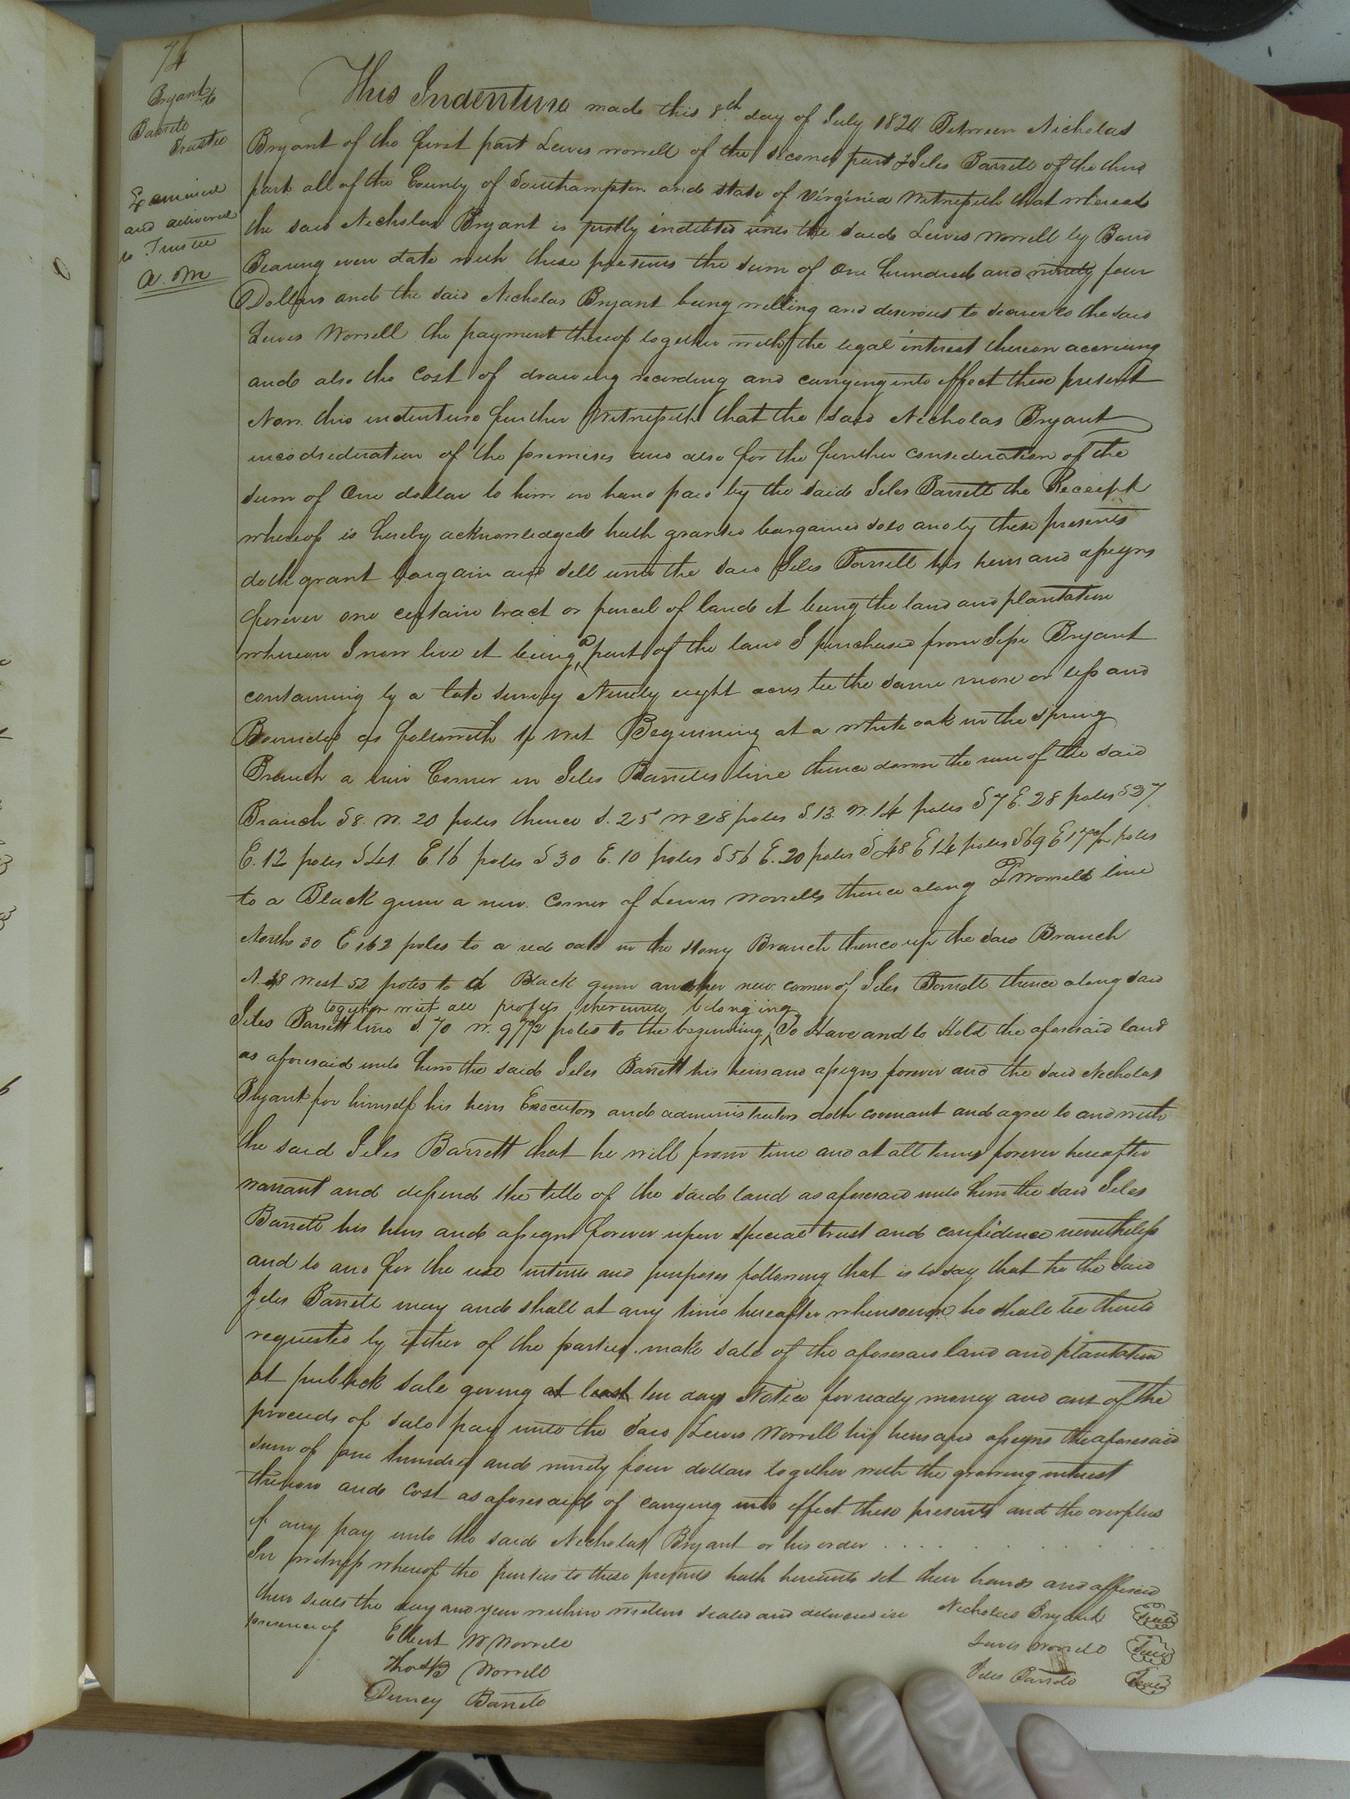 74
Bryant to
Barrett
Trustee
Examined
and delivered
to Trustee
A. M
This Indenture made this 8th day of July 1820 Between Nicholas
Bryant of the first part Lewis worrell of the second part & Jiles Barrett of the third
part all of the County of Southampton and state of Virginia Witnesseth that whereas
the said Nicholas Bryant is justly indebted unto the said Lewis Worrell by Bond
Bearing even date with these presents the sum of one hundred and ninety four
Dollars and the said Nicholas Bryant being willing and desirous to secure to the said
Lewis Worrell the payment thereof together with the legal interest thereon accruing
and also the Cost of drawing recording and carrying into effect these present
Now this indenture further Witnesseth that the said Nicholas Bryant
incodsideration of the premises and also for the further consideration of the
sum of One dollar to him in hand paid by the said Jiles Barrett the Receipt
whereof is hereby acknowledged hath granted bargained sold and by these presents
doth grant bargain and sell unto the said Jiles Barrett his heirs and assigns
forever one certain tract or parcel of land it being the land and plantation
whereon I now live it being a part of the land I purchased from Jesse Bryant
containing by a late survey Ninety eight acres be the same more or less and
Bounded as followeth to wit Beginning at a white oak in the spring
Branch a new Corner in Jiles Barretts line thence down the run of the said
Branch S 8. W. 20 poles thence S. 25 W 28 poles S 13. W. 14 poles S 7 E. 28 poles S 37
E. 12 poles S 41 E 16 poles S 30 E. 10 poles S 56 E. 20 poles S 48 E 14 poles S 69 E 17 poles
to a Black gum a new corner of Lewis Worrells thence along L Worrells line
North 30 E 162 poles to a red oak in the stony Branch thence up the said Branch
N. 48 West 52 poles to a Black gum another new corner of Jiles Barrett thence along said
together with all profits thereunto belonging
Jiles Barrett line S. 70 W. 97 1/2 poles to the beginning To Have and to Hold the aforesaid land
as aforesaid unto him the said Jiles Barrett his heirs and assigns forever and the said Nicholas
Bryant for himself his heirs Executors and administrators doth covenant and agree to and with
the said Jiles Barrett that he will from time and at all times forever hereafter
warrant and defend the title of the said land as aforesaid unto him the said Jiles
Barrett his heirs and assigns forever upon special trust and confidence nevertheless
and to and for the use intents and purposes following that is to say that he the said
Jiles Barrett may and shall at any time hereafter whensoever he shall be thereto
requested by either of the parties make sale of the aforesaid land and plantation
at publick sale giving at least ten days Notice for ready money and out of the
proceeds of sale pay unto the said Lewis Worrell his heirs and assigns the aforesaid
sum of one hundred and ninety four dollars together with the growing interest
thereon and Cost as aforesaid of carrying into effect these presents and the overplus
if any pay unto the said Nicholas Bryant or his order . . . .
In witness whereof the parties to these presents hath hereunto set their hands and affixed
their seals the day and year within written sealed and delivered in Nicholas Bryant Seal
presence of
Elbert W Worrell Lewis Worrell Seal
Thos B Worrell Jiles Barrett Seal
Durney Barrett